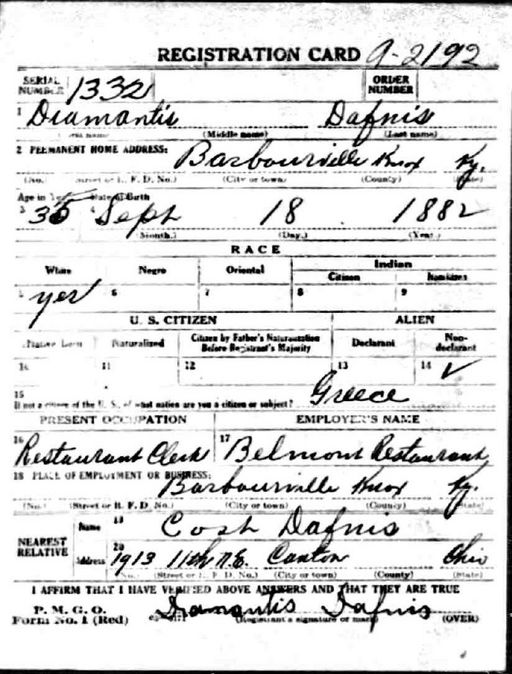 REGISTRATION CARD 9-2192
SERIAL NUMBER 1332 ORDER NUMBER
1 Diamantis Dafnis
(Middle name) (Last name)
2 PERMANENT HOME ADDRESS: Barbourville Knox Ky.
(No.) (Street or R. F. D. No.) (City or town) (County) (State)
Age in Years Date of Birth
3 35 4 Sept 18 1882
(Month.) (Day.) (Year.)
RACE
White Negro Oriental Indian
Citizen Noncitizen
5 yes 6 7 8 9
U. S. CITIZEN ALIEN
Native Born Naturalized Citizen by Father's Naturalization Before Registrant's Majority Declarant Non-declarant
10 11 12 13 14 ✓
15 If not a citizen of the U. S., of what nation are you a citizen or subject? Greece
PRESENT OCCUPATION EMPLOYER'S NAME
16 Restaurant Clerk 17 Belmont Restaurant
18 PLACE OF EMPLOYMENT OR BUSINESS: Barbourville Knox Ky.
(No.) (Street or R. F. D. No.) (City or town) (County) (State)
NEAREST RELATIVE
Name 19 Cost Dafnis
Address 20 1913 11th N.E. Canton Ohio
(No.) (Street or R. F. D. No.) (City or town) (County) (State)
I AFFIRM THAT I HAVE VERIFIED ABOVE ANSWERS AND THAT THEY ARE TRUE
P. M. G. O.
Form No. 1 (Red) Diamantis Dafnis
(Registrant's signature or mark) (OVER)